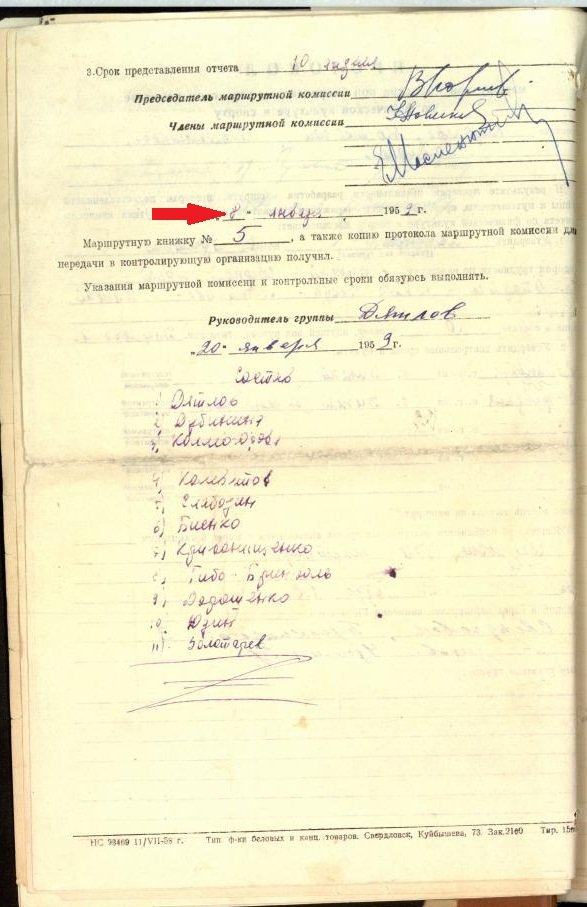 3.Срок представления отчета 10
Председатель маршрутной комиссии
Члены маршрутной комиссии
„8“ января 1959г.
Маршрутную книжку № 5 , а также копию протокола маршрутной комиссии для
передачи в контролирующую организацию получил.
Указания маршрутной комиссии и контрольные сроки обязуюсь выполнять.
Руководитель группы Дятлов
„20“ января 1959г.
Состав
1) Дятлов
2) Дубинина
3) Колмогорова
4) Колеватов
5) Слободин
6) Биенко
7) Кривонищенко
8) Тибо-Бриньоль
9) Дорошенко
10 Юдин
11) Золотарев
НС 23469 11/VII-58 г. Тип. ф-ки беловых и канц. товаров. Свердловск, Куйбышева, 73. Зак.2160 Тир.